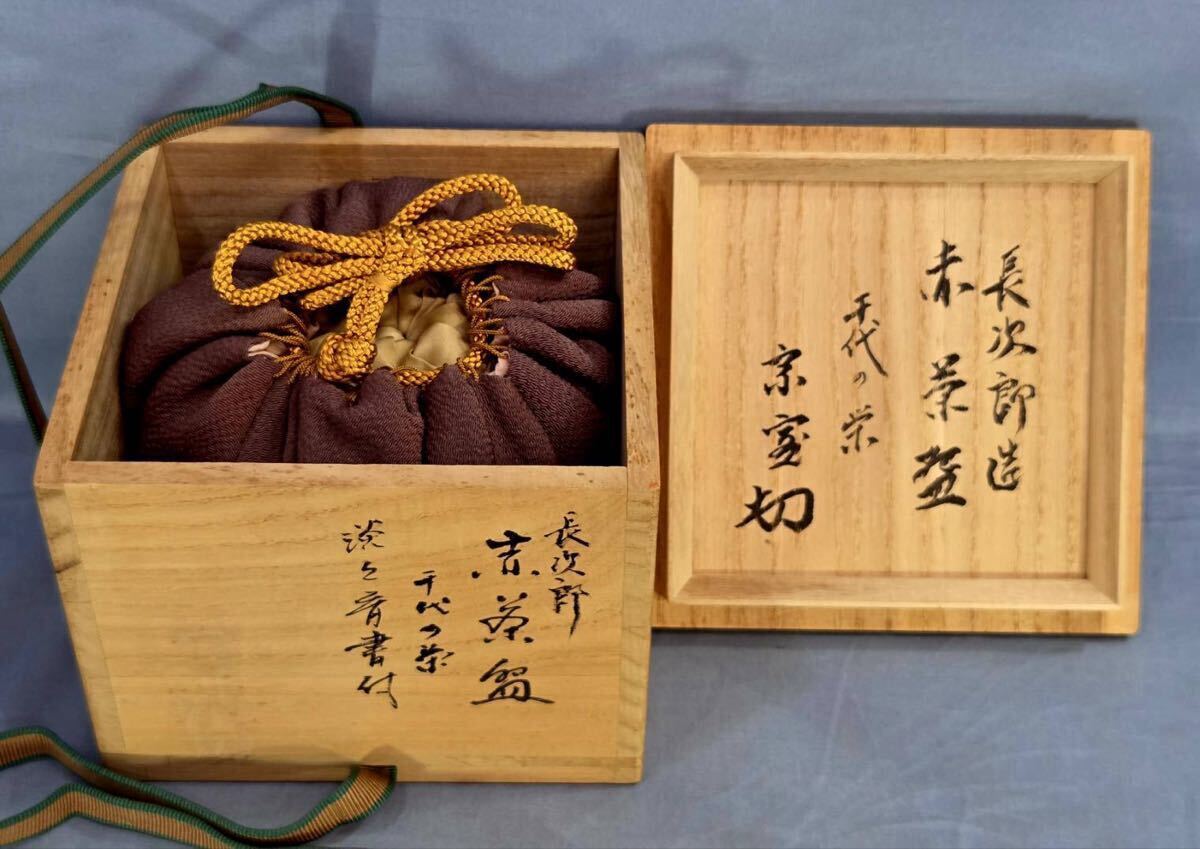 長次郎造
赤茶盌
千代の栄
宗室
長次郎
赤茶盌
千代の栄
淡々斎書付